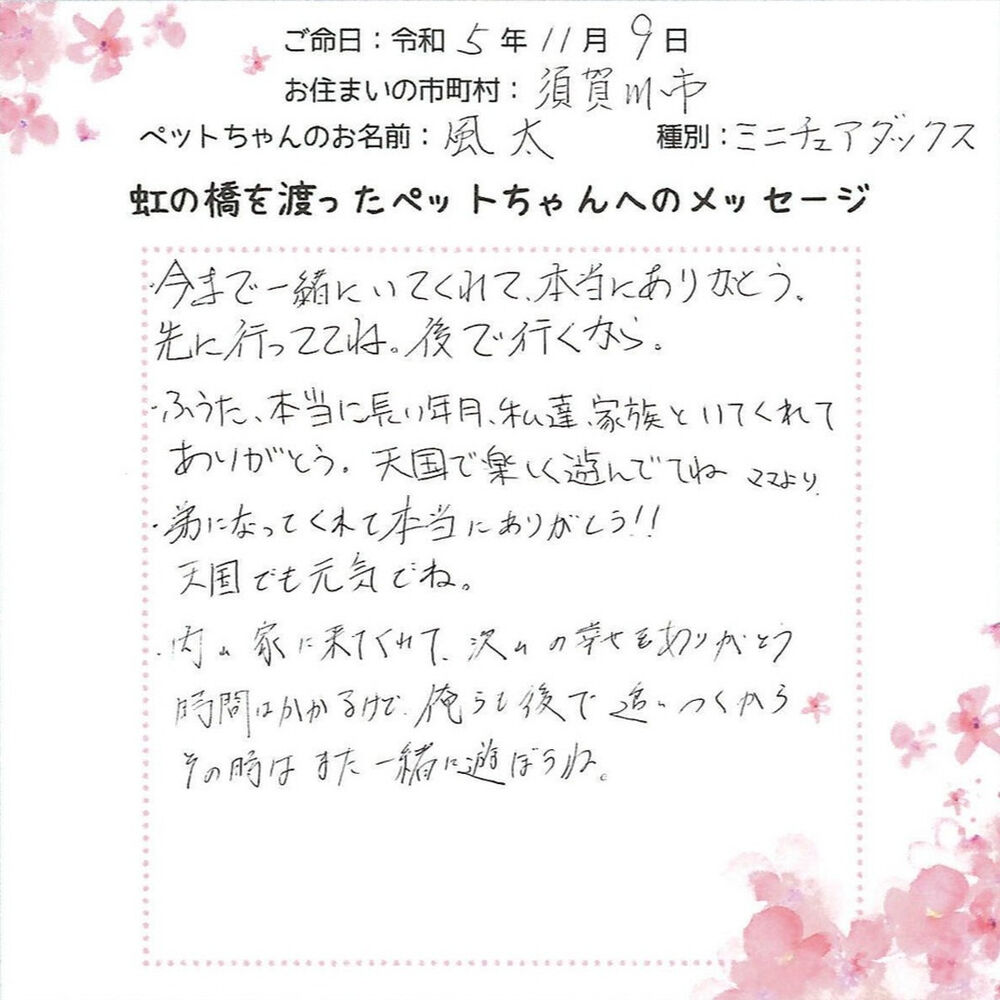 ご命日：令和 5 年 11 月 9 日
お住まいの市町村：須賀川市
ペットちゃんのお名前：風太 種別：ミニチュアダックス
虹の橋を渡ったペットちゃんへのメッセージ
・今まで一緒にいてくれて、本当にありがとう。
先に行っててね。後で行くから。
・ふうた、本当に長い年月、私達、家族といてくれて
ありがとう。天国で楽しく遊んでてね ママより
・弟になってくれて本当にありがとう!!
天国でも元気でね。
・内の家に来てくれて、沢山の幸せをありがとう
時間はかかるけど、俺らも後で追いつくから
その時はまた一緒に遊ぼうね。